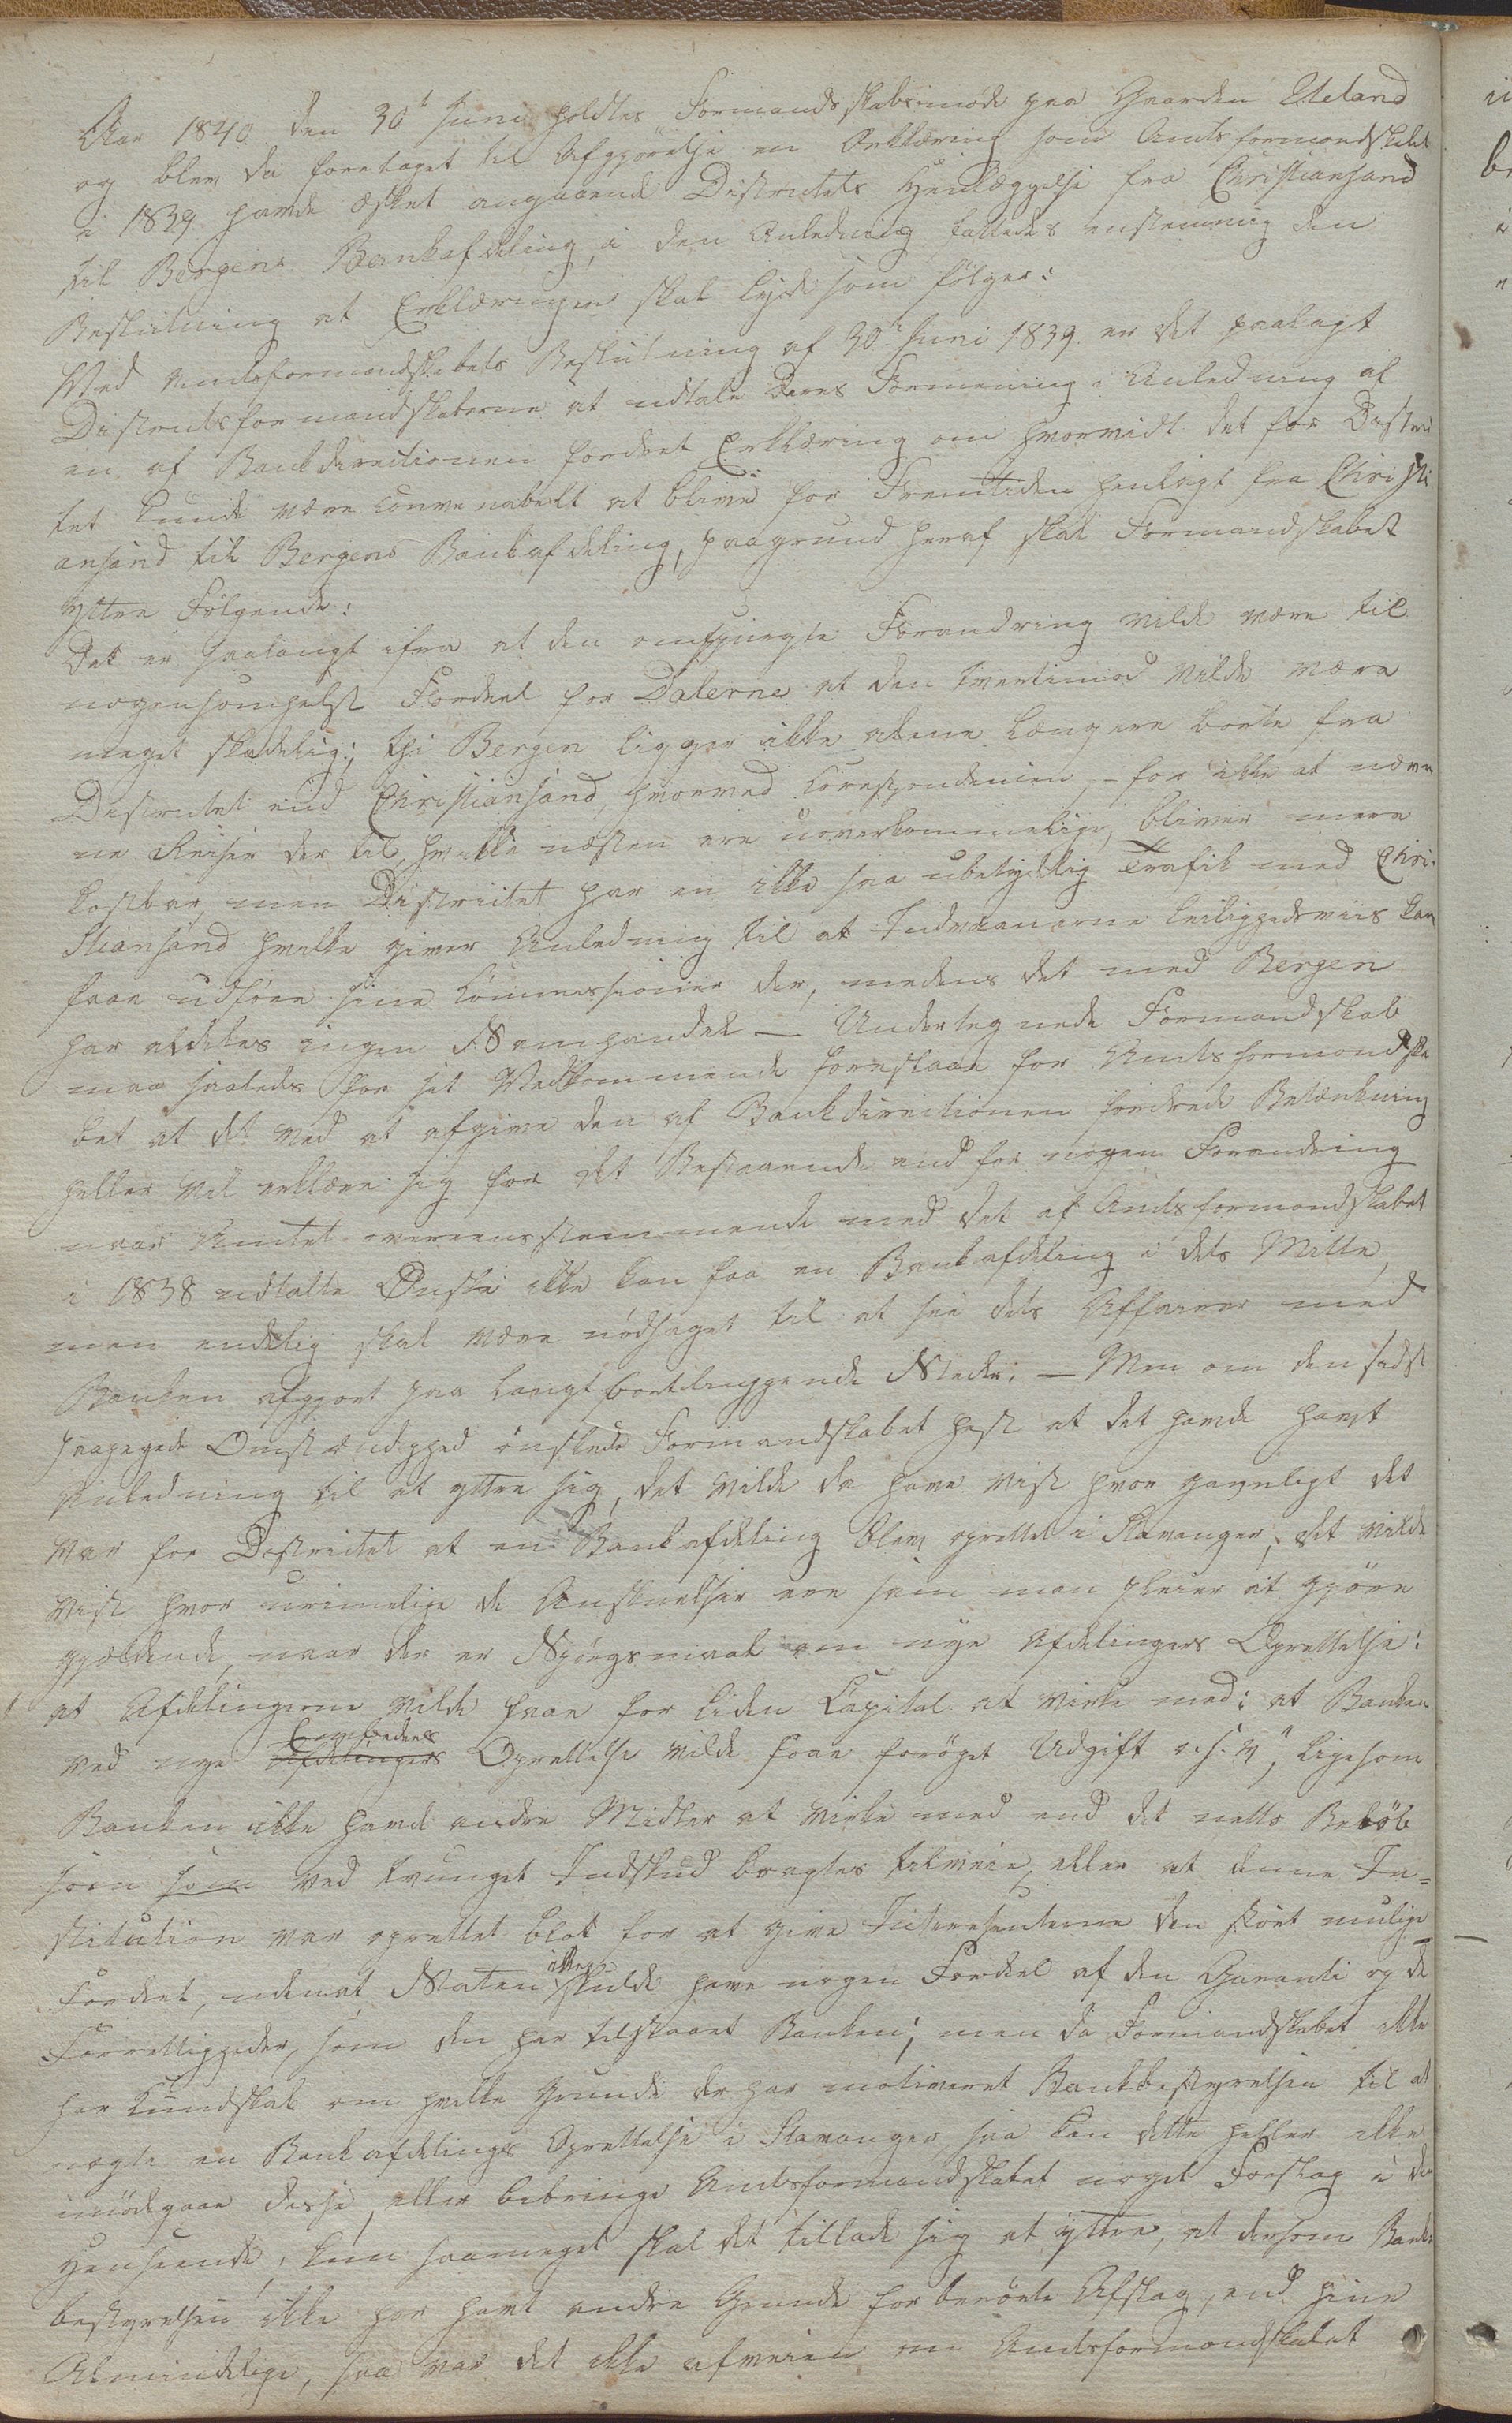 Aar 1840 den 30t Juni holdtes Formandsskabsmøde paa Gaarden Ueland
og blev da foretaget til Afgjørelse en Erklæring som Amtsformandskabet
i 1839 havde æsket angaaende Districtets Henlæggelse fra Christiansand
til Bergens Bankafdeling, i den Anledning fattedes enstemmig den
Beslutning at Erklæringen skal lyde som følger:
Ved Amtsformandskabets Beslutning af 30t Juni 1839 er det paalagt
Districtsformandskaberne at udtale deres Formening i Anledning af
en af Bankdirectionen fordret Erklæring om hvorvidt det for Distric
tet kunde være convenabelt at blive for Fremtiden henlagt fra Christi
ansand til Bergens Bankafdeling, paagrund heraf skal Formandskabet
yttre Følgende:
Det er saalangt ifra at den omspurgte Forandring vilde være til
nogensomhelst Fordeel for Dalerne at den tvertimod vilde være
meget skadelig; thi Bergen ligger ikke alene længere borte fra
Districtet end Christiansand, hvorved Correspondencen, – for ikke at næv
ne Reiser der til, hvilke næsten ere uoverkommelige, bliver mere
kostbar, men Districtet har en ikke saa ubetydelig Trafik med Chri-
stiansand hvilke giver Anledning til at Indvaanerne leiligheedsviis kan
faae udføre sine Commissioner der, medens det med Bergen
har aldeles ingen Samhandel – Undertegnede Formandskab
maa saaledes for sit Vedkommende foreslaae for Amtsformandska
bet at det ved at afgive den af Bankdirectionen fordrede Betænkning
heller vil erklære sig for det Bestaaende end for nogen Forandring
naar Amtet overeensstemmende med det af Amtsformandskabet
i 1838 udtalte Ønske ikke kan faa en Bankafdeling i dets Midte,
men endelig skal være nødsaget til at see dets Affairer med
Banken afgjort paa langtbortliggende Steder. – Men om den sidst
paapegede Omstændighed ønskede Formandskabet helst at det havde havt
Anledning til at yttre sig, det vilde da have vist hvor gavnligt det
var for Districtet at en Bankafdeling blev oprettet i Stavanger, det vilde
vist hvor urimelige de Anskuelser ere som man pleier at gjøre
gjældende, naar der er Spørgsmaal om nye Afdelingers Oprettelse:
at Afdelingerne vilde faae for liden Capital at virke med; at Banken
ved nye Afdelingers Oprettelse vilde faae forøget Udgift o. s. v", ligesom
Banken ikke havde andre Midler at virke med end det netto Beløb
som som ved tvunget Indskud bragtes tilveie, eller at denne In=
stitution var oprettet blot for at give Interesenterne den størst mulige
Fordeel, uden at Staten skulde have nogen Fordeel af den Garanti og de
Forrettigheder, som den har tilstaaet Banken; men da Formandskabet ikke
har Kundskab om hvilke Grunde der har motiveret Bankbestyrelsen til at
nægte en Bankafdelings Oprettelse i Stavanger, saa kan dette heller ikke
imødegaae disse, eller bebringe Amtsformandskabet noget Forslag i den
Henseende, kun saameget skal det tillade sig at yttre, at dersom Bank
bestyrelsen ikke har havt andre Grunde for berørte Afslag, end hine
Almindelige, saa var det ikke afveien om Amtsformandskabet